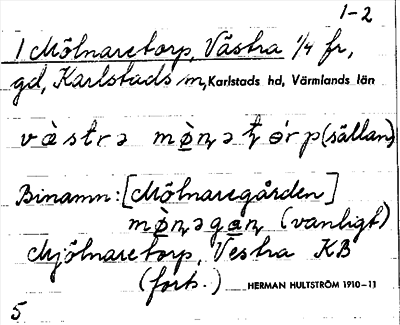 1-2
1 Mölnaretorp, Västra 1/4 fr,
gd, Karlstads m, Karlstads hd, Värmlands län
væ̀strə mø̀ɳəʈɵ́rp (sällan)
Binamn: [Mölnaregården]
mø̀ɳəgaɳ (vanligt)
Mjölnaretorp, Vestra KB
(forts.) HERMAN HULTSTRÖM 1910-11
5